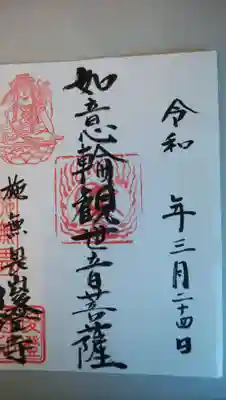 令和 年三月二十四日
如意輪観世音菩薩
施無畏山